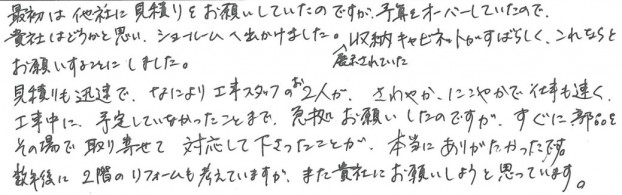 最初は他社に見積りをお願いしていたのですが、予算をオーバーしていたので、
貴社はどうかと思い、ショールームへ出かけました。収納キャビネットがすばらしく、これならと
展示されていた
お願いすることにしました。
見積りも迅速で、なにより工事スタッフのお2人が、さわやか、にこやかで仕事も速く、
工事中に、予定していなかったことまで、急拠お願いしたのですが、すぐに部品を
その場で取り寄せて対応して下さったことが、本当にありがたかったです。
数年後に2階のリフォームも考えていますが、また貴社にお願いしようと思っています。